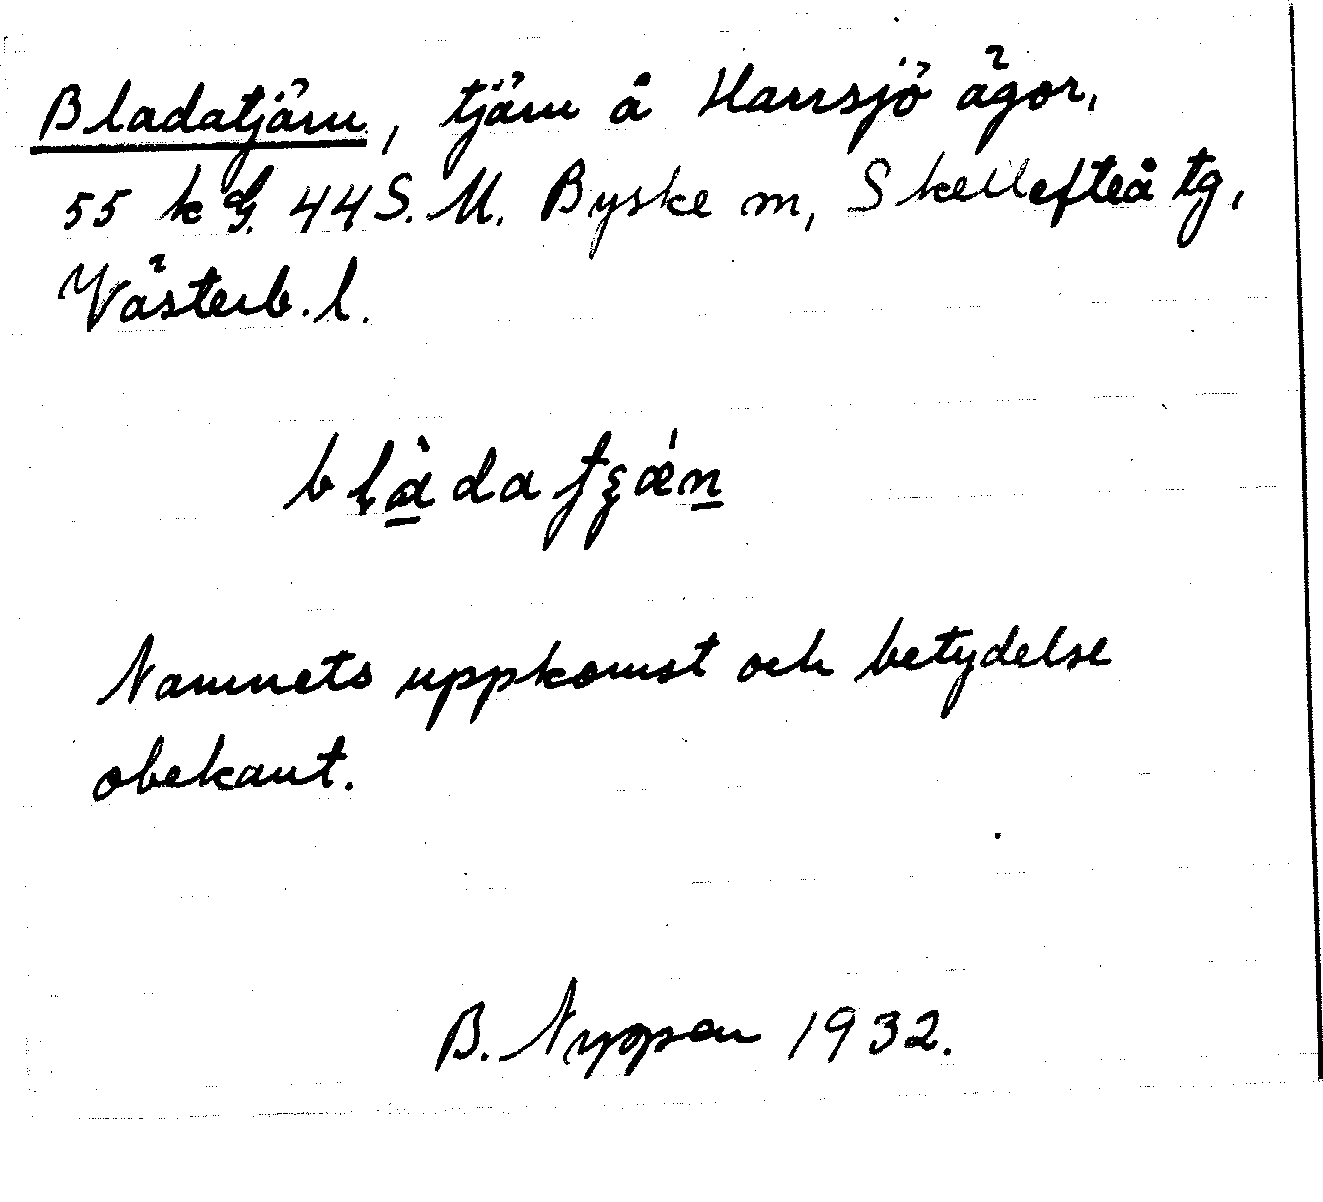 Bladatjärn, tjärn å Harrsjö ägor,
55 k G. 44 S. M. Byske sn, Skellefteå tg,
Västerb. l.
Namnets uppkomst och betydelse
obekant.
B. Nyppen 1932.